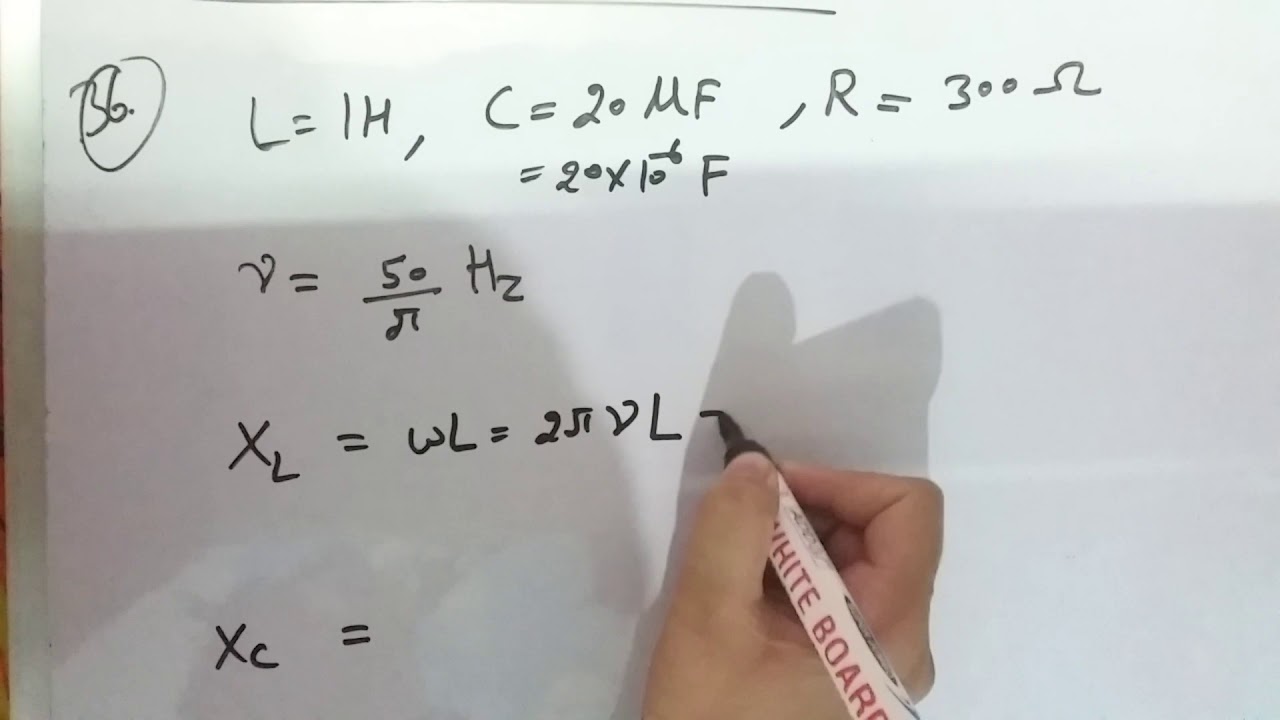 36.
L = 1H, C = 20 μF, R = 300 Ω
= 20×10⁻⁶ F
ν = 50/π Hz
X_L = ωL = 2πνL
X_C =
WHITE BOARD